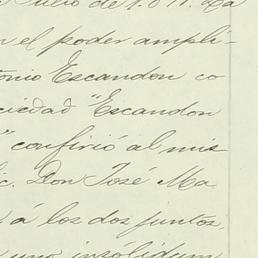 Julio de 1.871. La
n el poder ampli-
tonio Escandon co
ciedad "Escandon
" confirió al mis
ic. Don José Ma
á los dos juntos,
uno insólidum